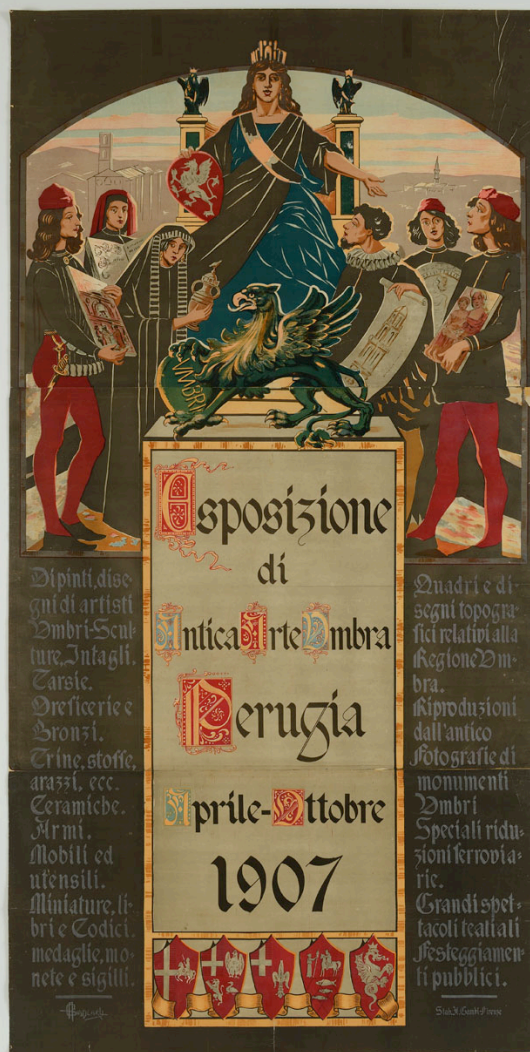 VMBRIA
Esposizione
di
Antica Arte Vmbra
Perugia
Aprile-Ottobre
1907
Dipinti, dise-
gni di artisti
Vmbri-Scul-
ture, Intagli.
Tarsie.
Oreficerie e
Bronzi.
Trine, stoffe,
arazzi, ecc.
Ceramiche.
Armi.
Mobili ed
utensili.
Miniature, li-
bri e Codici.
medaglie, mo-
nete e sigilli.
Quadri e di-
segni topogra-
fici relativi alla
Regione Vm-
bra.
Riproduzioni
dall'antico
Fotografie di
monumenti
Vmbri
Speciali ridu-
zioni ferrovia-
rie.
Grandi spet-
tacoli teatrali
Festeggiamen-
ti pubblici.